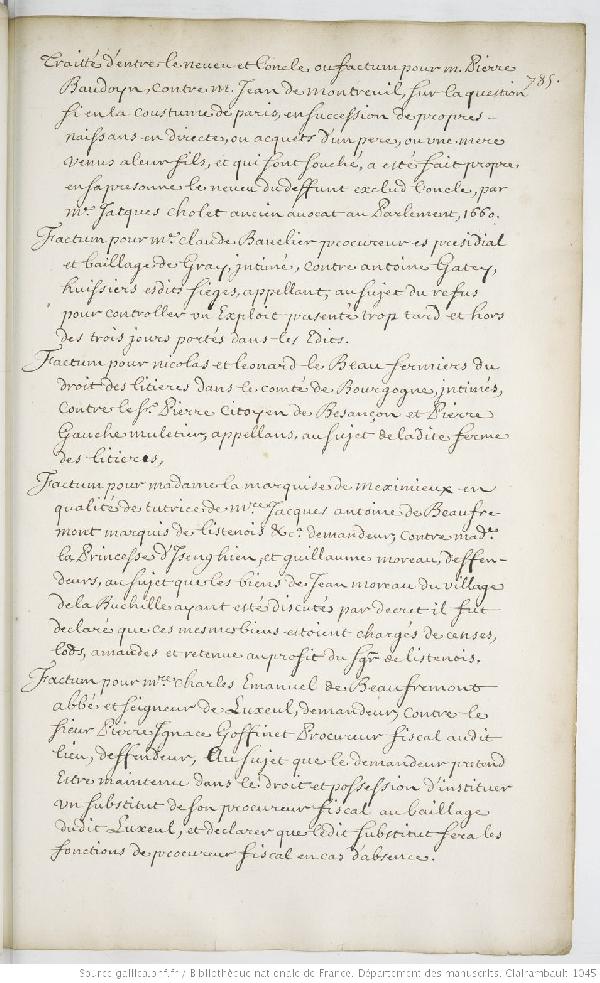 Traitté d'entre le neveu et l'oncle, ou factum pour m. Pierre
785.
Baudoyn, contre m. Jean de montreuil, sur la question
si en la coustume de paris, en succession de propres
naissans en directe, ou acquets d'un pere, ou une mere
venus a leur fils, et qui font souche, a esté fait propre
en sa presonne le neveu du deffunt exclud l'oncle, par
me. Jacques cholet ancien avocat au Parlement, 1660.
Factum pour me. claude Bavelier procureur es presidial
et baillage de Gray, intimé, contre antoine Gatey,
huissiers esdits sieges, appellant, au sujet du refus
pour controller un Exploit presenté trop tard et hors
des trois jours portés dans les Edits.
Factum pour nicolas et leonard le Beau fermiers du
droit des litieres dans le comté de Bourgogne, intimés,
contre le sr. Pierre citoyen de Besançon et Pierre
Gauche muletier, appellans, au sujet de la dite ferme
des litieres,
Factum pour madame la marquise de meximieux en
qualité de tutrice de mre Jacques antoine de Beaufre-
mont marquis de listenois &ca. demandeur, contre made.
la Princesse d'Isenghien, et guillaume moreau, deffen-
deurs, au sujet que les biens de Jean moreau du village
de la Buchille ayant estés discutés par decret il fut
declaré que ces mesmes biens estoient chargés de censes,
lods, amandes et retenue au profit du sgr. de listenois.
Factum pour mre charles Emanuel de Beaufremont
abbé et seigneur de Luxeul, demandeur, contre le
sieur Pierre Ignace Goffinet Procureur fiscal audit
lieu, deffendeur, Au sujet que le demandeur pretend
Estre maintenu dans le droit et possession d'instituer
un substitut de son procureur fiscal au baillage
dudit Luxeul, et declarer que ledit substitut fera les
fonctions de procureur fiscal en cas d'absence.
Source gallica.bnf.fr / Bibliothèque nationale de France. Département des manuscrits. Clairambault 1045